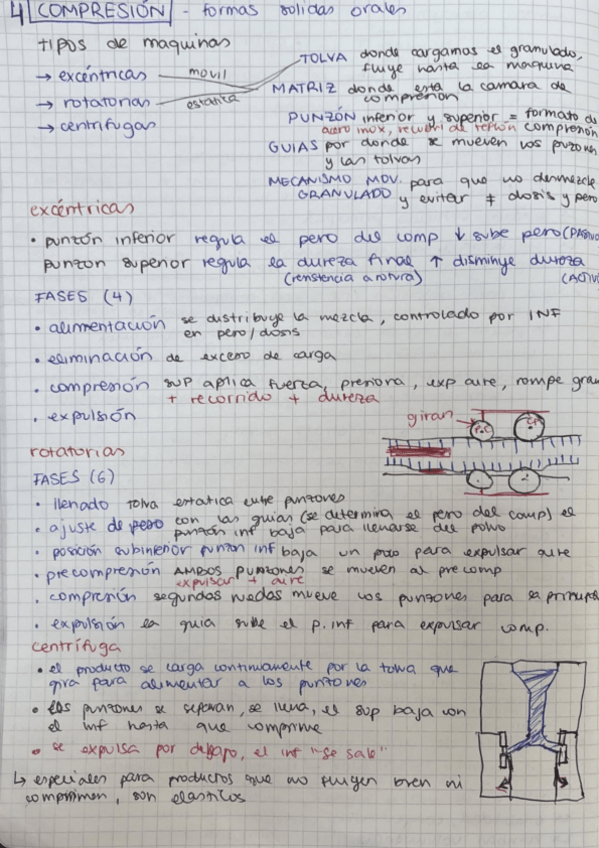 4 COMPRESIÓN - formas solidas orales
tipos de maquinas
→ excéntricas movil
→ rotatorias estatica
→ centrifugas
TOLVA donde cargamos el granulado, fluye hasta la maquina
MATRIZ donde esta la camara de compresión
PUNZÓN inferior y superior = formato de compresión
acero inox, recubri de teflón
GUIAS por donde se mueven los punzones
y las tolvas
MECANISMO MOV. GRANULADO para que no desmezcle
y evitar ≠ dosis y peso
excéntricas
• punzón inferior regula el peso del comp ↓ sube peso (PASIVO
punzon superior regula la dureza final ↑ disminuye dureza
(resistencia a rotura) (ACTIV
FASES (4)
• alimentación se distribuye la mezcla, controlado por INF
en peso/dosis
• eliminación de exceso de carga
• compresión SUP aplica fuerza, presiona, exp aire, rompe gran
+ recorrido + dureza
• expulsión
giran
P.C
CP
rotatorias
FASES (6)
• llenado tolva estatica entre punzones
• ajuste de peso con las guias (se determina el peso del comp) el
punzón inf baja para llenarse del polvo
• posición subinferior punzon inf baja un poco para expulsar aire
• precompresión AMBOS PUNZONES se mueven al pre comp
expulsar + aire
• compresión segundas ruedas mueve los punzones para la principal
• expulsión la guia sube el p.inf para expulsar comp.
centrífuga
• el producto se carga continuamente por la tolva que
gira para alimentar a los punzones
• los punzones se separan, se llena, el sup baja con
el inf hasta que comprime
• se expulsa por debajo, el inf "se sale"
↳ especiales para productos que no fluyen bien ni
comprimen, son elasticos